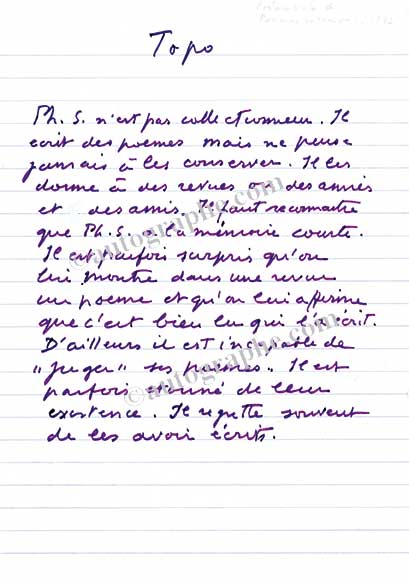 Topo
Ph. S. n'est pas collectionneur. Il
écrit des poèmes mais ne pense
jamais à les conserver. Il les
donne à des revues ou des amies
et des amis. Il faut reconnaître
que Ph. S. a la mémoire courte.
Il est parfois surpris qu'on
lui montre dans une revue
un poème et qu'on lui affirme
que c'est bien lui qui l'a écrit.
D'ailleurs il est incapable de
"juger" ses poèmes. Il est
parfois étonné de leur
existence. Il regrette souvent
de les avoir écrits.
©autographe.com
©autographe.com